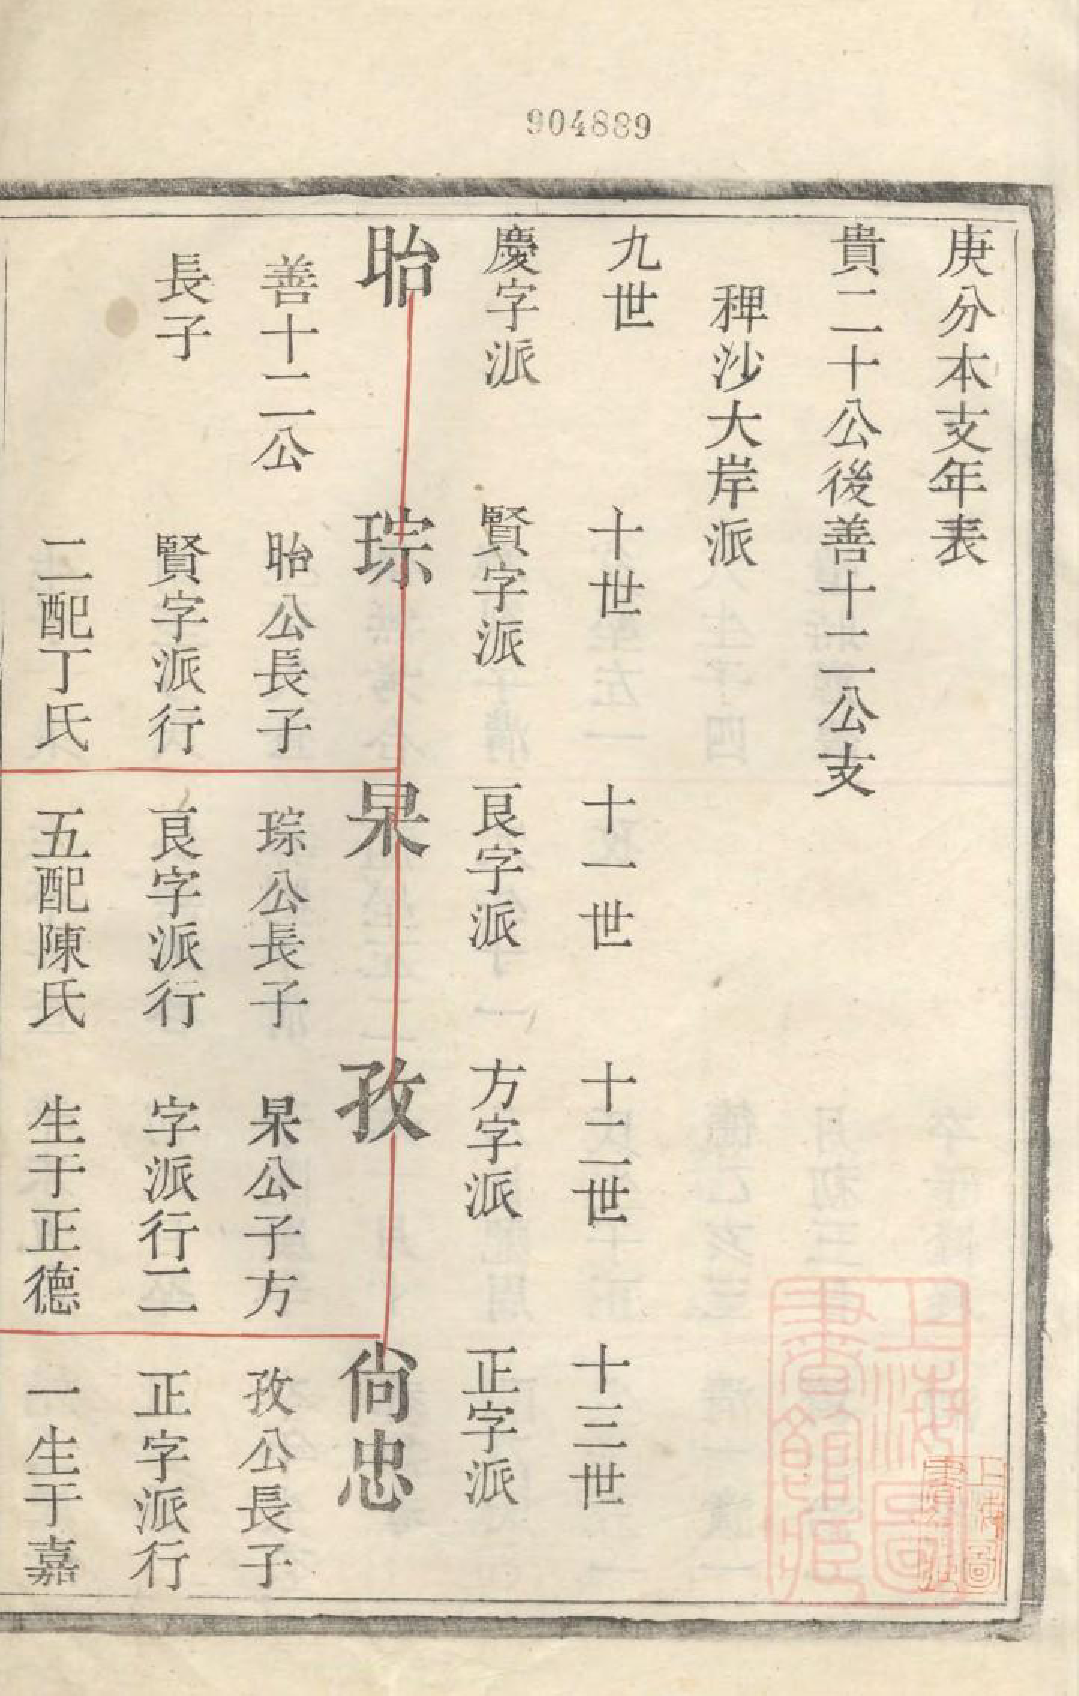 904889
庚分本支年表
貴二十公後善十二公支
稗沙大岸派
九世
十世
十一世
十二世
十三世
慶字派
賢字派
艮字派
方字派
正字派
眙
琮
杲
孜
尙忠
善十二公
長子
眙公長子
賢字派行
二配丁氏
琮公長子
艮字派行
五配陳氏
杲公子方
字派行二
生于正德
孜公長子
正字派行
一生于嘉
上海圖書館藏
上海圖書館藏